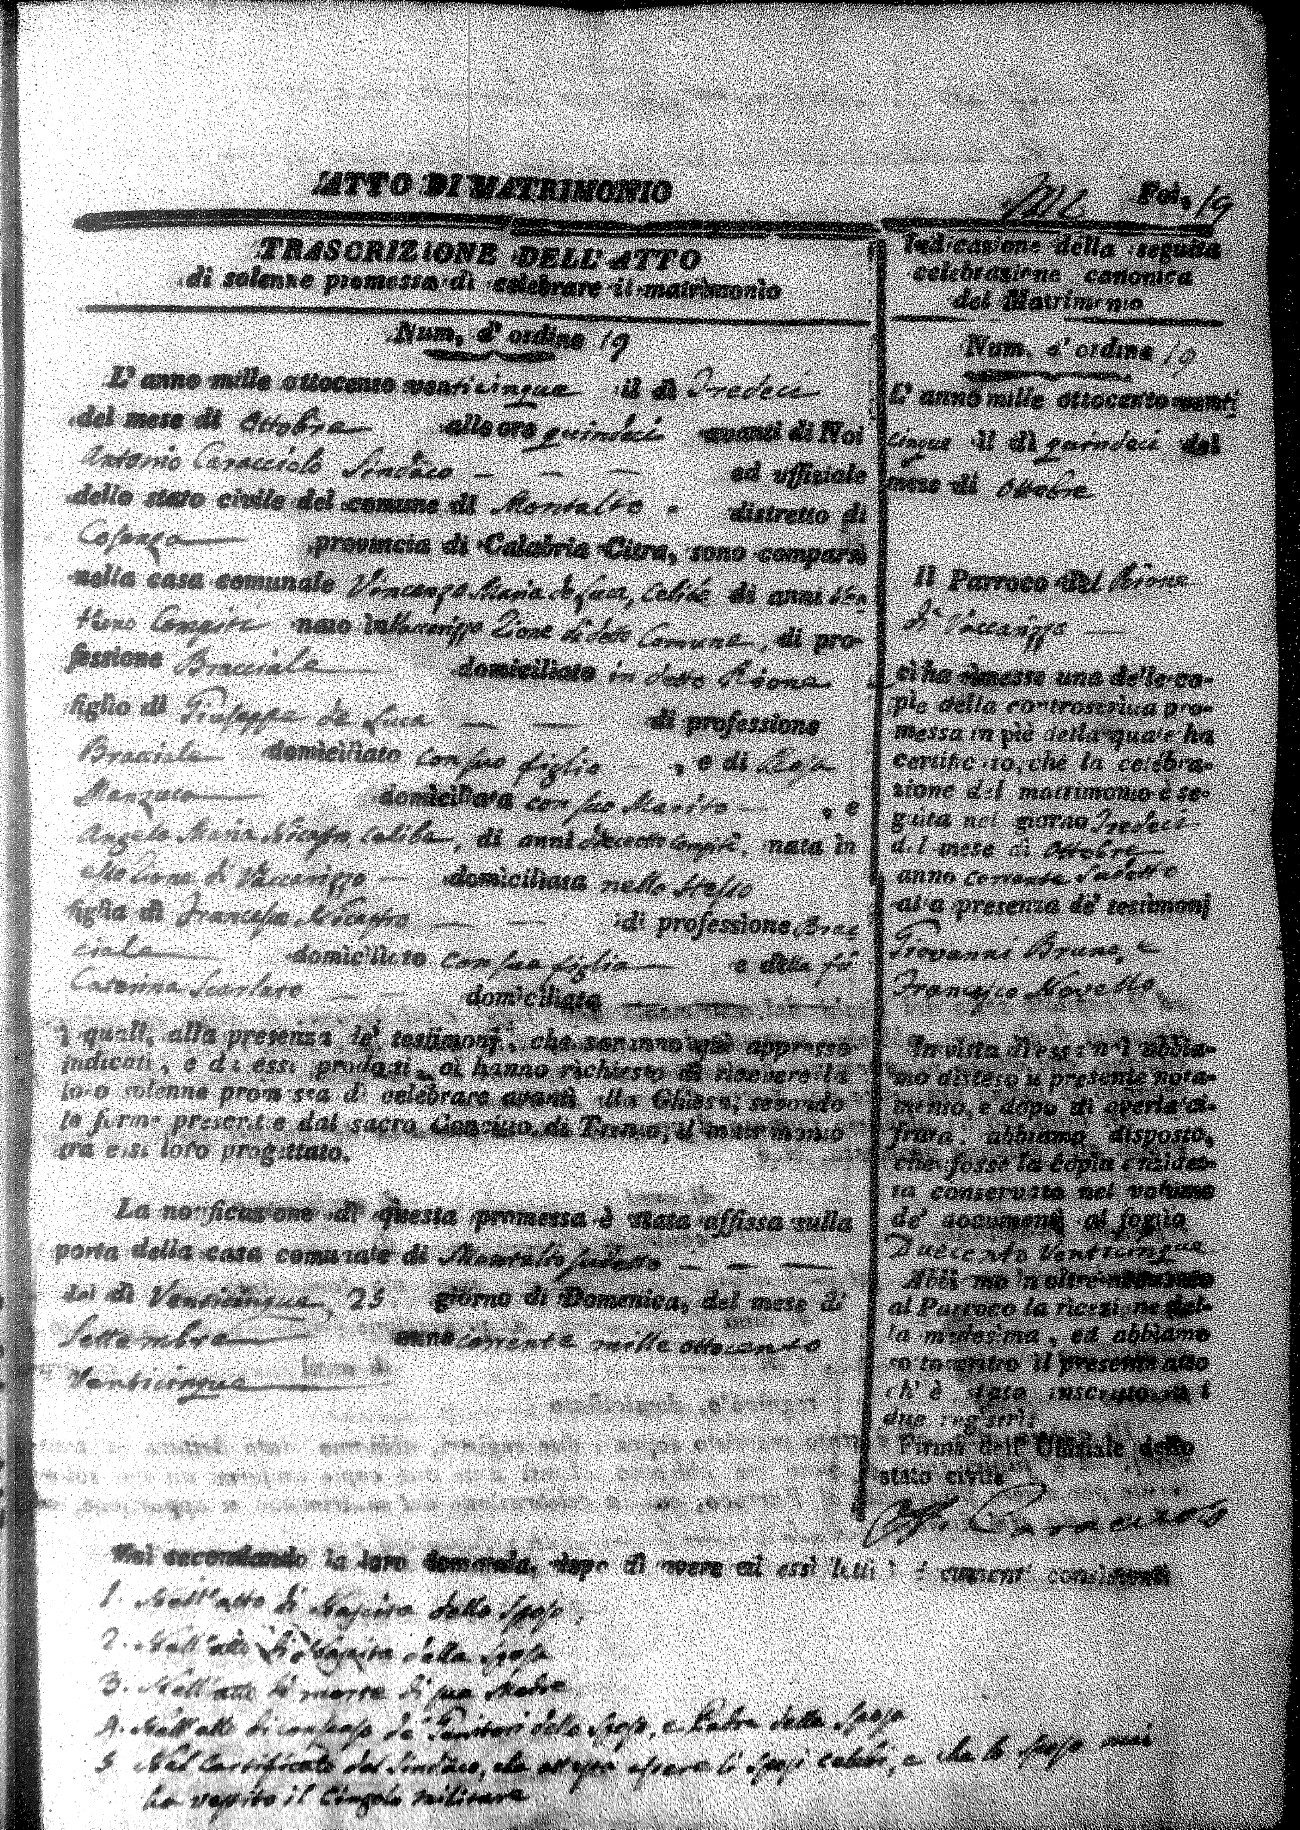 ATTO DI MATRIMONIO
Fol. 19
TRASCRIZIONE DELL' ATTO
di solenne promessa di celebrare il matrimonio
Num. d' ordine 19
L' anno mille ottocento venticinque il dì Tredeci
del mese di Ottobre alle ore quindeci avanti di Noi
Antonio Caracciolo Sindaco — — — ed uffiziale
dello stato civile del comune di Montalto distretto di
Cosenza provincia di Calabria Citra, sono comparsi
nella casa comunale Vincenzo Maria de Luca, Celibe di anni
Compiti nato in Vaccarizzo Rione di detto Comune, di pro-
fessione Bracciale domiciliato in detto Rione
figlio di Giuseppe de Luca — — di professione
Bracciale domiciliato con suo figlio , e di Rosa
domiciliata con suo Marito — , e
Angela Maria Nicastro Celibe, di anni dieceotto compiti, nata in
esso Rione di Vaccarizzo — domiciliata nello stesso
figlia di Francesco Nicastro — — di professione Brac
ciale domiciliato con sua figlia e della fu
Caterina Scarlare — — domiciliata — — —
i quali, alla presenza de' testimonj, che saranno quì appresso
indicati, e da essi prodotti, ci hanno richiesto di ricevere la
loro solenne promessa di celebrare avanti alla Chiesa, secondo
le forme prescritte dal sacro Concilio di Trento, il matrimonio
tra essi loro progettato.
La notificazione di questa promessa è stata affissa sulla
porta della casa comunale di Montalto sudetto — — —
del dì Venticinque, 25 giorno di Domenica, del mese di
Settembre anno corrente mille ottocento
Venticinque
Indicazione della seguita
celebrazione canonica
del Matrimonio
Num. d' ordine 19
L' anno mille ottocento venti
cinque il dì quindeci del
mese di Ottobre
Il Parroco del Rione
di Vaccarizzo —
ci ha rimesso una delle co-
pie della controscritta pro-
messa in piè della quale ha
certificato, che la celebra-
zione del matrimonio è se-
guita nel giorno Tredeci
del mese di Ottobre
anno corrente sudetto
alla presenza de' testimonj
Giovanni Bruno, e
Francesco Novello
In vista di essa noi abbia-
mo disteso il presente nota-
mento, e dopo di averla ci-
frata, abbiamo disposto,
che fosse la copia anzidet-
ta conservata nel volume
de' documenti al foglio
Duecento Venticinque
Abbiamo in oltre accusato
al Parroco la ricezione del-
la medesima, ed abbiamo
sottoscritto il presente atto
ch' è stato inscritto su i
due registri
Firma dell' Uffiziale dello
stato civile
Caracciolo
Noi secondando la loro domanda, dopo di avere ad essi letti i documenti consistenti
1. Nell'atto di Nascita dello Sposo.
2. Nell'atto di Nascita della Sposa
3. Nell'atto di morte di sua Madre
4. Nell'atto di consenso de' Genitori dello Sposo, e Padre della Sposa
5. Nel Certificato del Sindaco, che attesta essere li Sposi celibi, e che lo Sposo mai
ha vestito il Cingolo militare